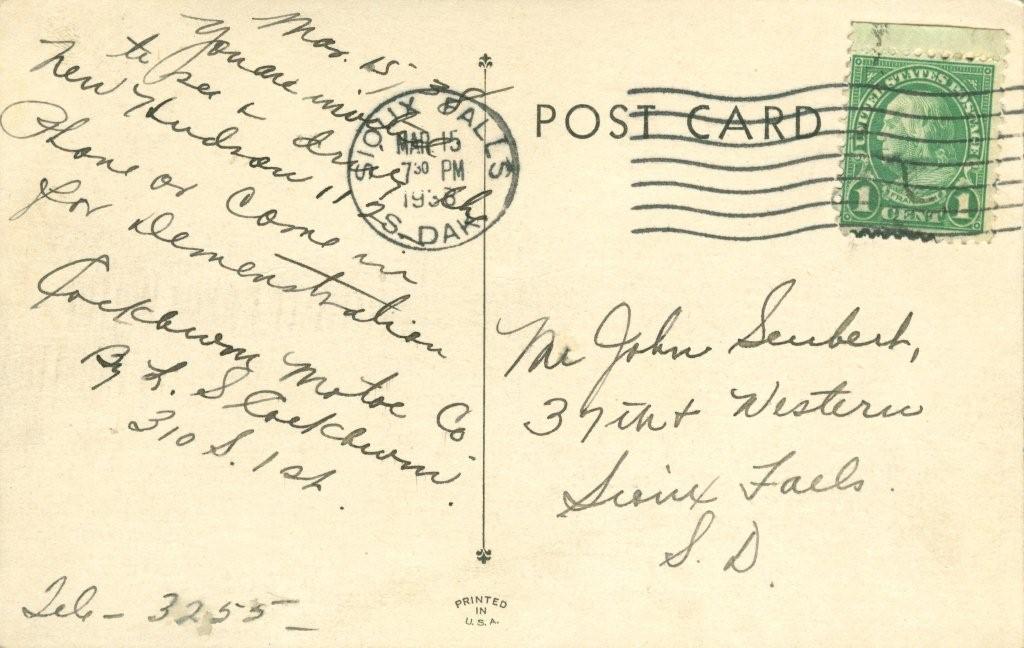 Mar. 15, 38
You are invited
to see & drive the
New Hudson 112
Phone or Come in
for Demenstration
Cockburn Motor Co
By L. S Cockburn.
310 S. 1st
Tele - 3255 -
SIOUX FALLS
MAR 15
7 30 PM
1938
S. DAK.
POST CARD
UNITED STATES POSTAGE
FRANKLIN
1 CENT 1
Mr John Seubert,
37th & Western
Sioux Falls.
S. D.
PRINTED
IN
U.S.A.